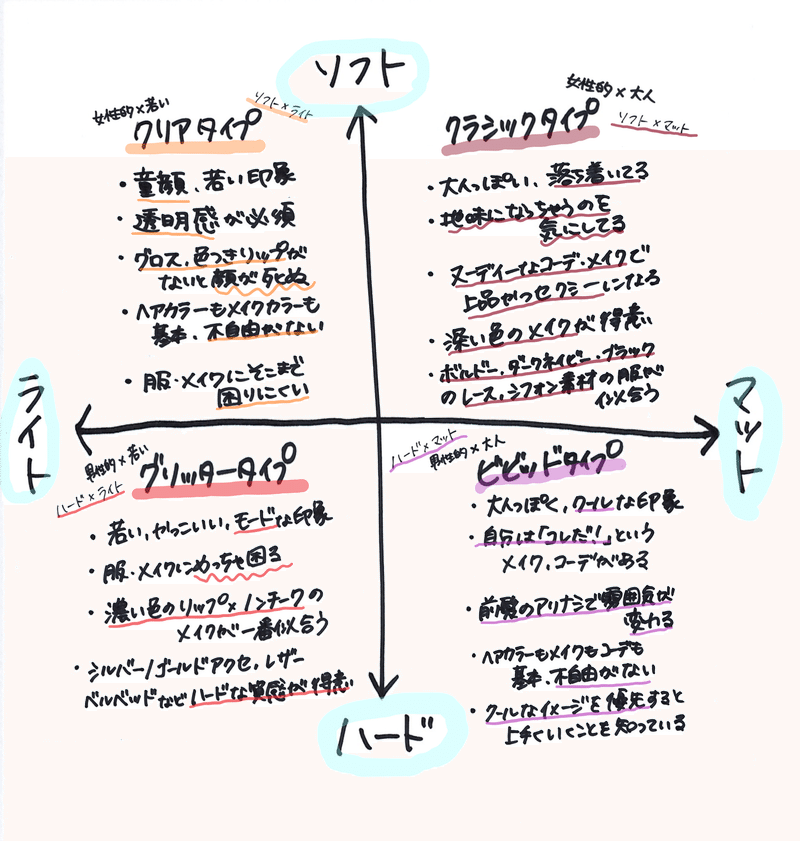 ソフト
女性的×若い
ソフト×ライト
クリアタイプ
・童顔、若い印象
・透明感が必須
・グロス、色つきリップが
ないと顔が死ぬ
・ヘアカラーもメイクカラーも
基本、不自由がない
・服・メイクにそこまで
困りにくい
女性的×大人
ソフト×マット
クラシックタイプ
・大人っぽい、落ち着いてる
・地味になっちゃうのを
気にしてる
・ヌーディーなコーデ・メイクで
上品かつセクシーになる
・深い色のメイクが得意
・ボルドー、ダークネイビー・ブラック
のレース、シフォン素材の服が
似合う
ライト
マット
男性的×若い
ハード×ライト
グリッタータイプ
・若い、かっこいい、モードな印象
・服・メイクにめっちゃ困る
・濃い色のリップ×ノンチークの
メイクが一番似合う
・シルバー/ゴールドアクセ、レザー
ベルベッドなどハードな質感が得意
ハード×マット
男性的×大人
ビビッドタイプ
・大人っぽく、クールな印象
・自分は「コレだ!」という
メイク、コーデがある
・前髪のアリナシで雰囲気が
変わる
・ヘアカラーもメイクもコーデも
基本、不自由がない
・クールなイメージを優先すると
上手くいくことを知っている
ハード